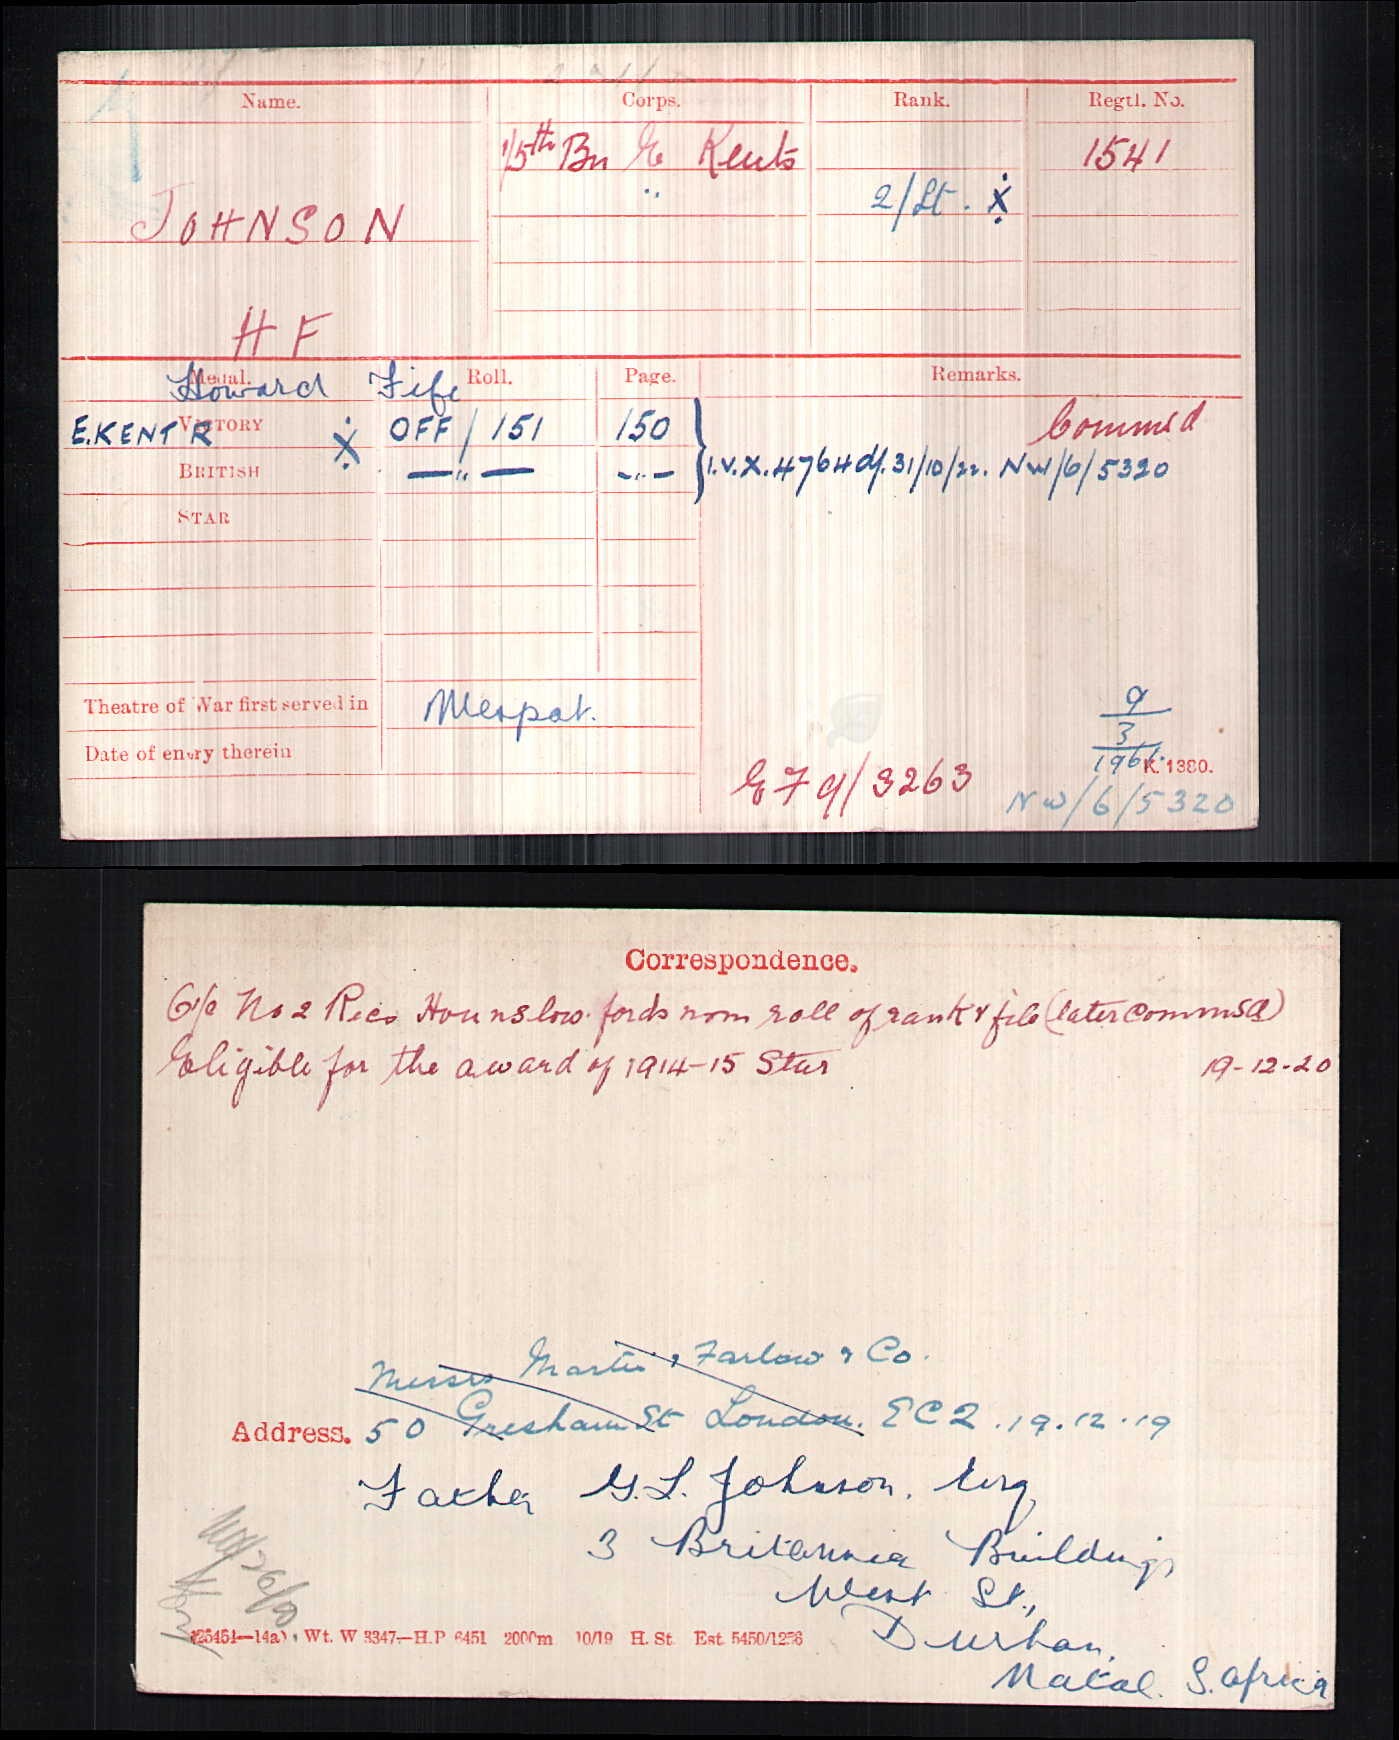 Name. Corps. Rank. Regtl. No.
1/5th Bn E Kents 1541
" 2/Lt. X
JOHNSON
H F
Howard Fife
Medal. Roll. Page. Remarks.
Commsd
E.KENT R VICTORY X OFF/151 150
BRITISH — " — - " - } I.V.X.4764 d/. 31/10/22. NW/6/5320
STAR
Theatre of War first served in Mespot.
Date of entry therein
9
3
1961.
K. 1380.
E F 9/3263 NW/6/5320
Correspondence.
O/c No 2 Recs Hounslow fords nom roll of rank & file (later commsd)
Eligible for the award of 1914-15 Star 19-12-20
Messrs Martin, Farlow & Co.
Address. 50 Gresham St London. EC2. 19.12.19
Father G.L. Johnson. Esq,
3 Britannia Buildings
West St.,
Durban,
Natal. S. Africa
Wt. W 3347—H.P 6451 2000m 10/19 H. St. Est. 5450/1256